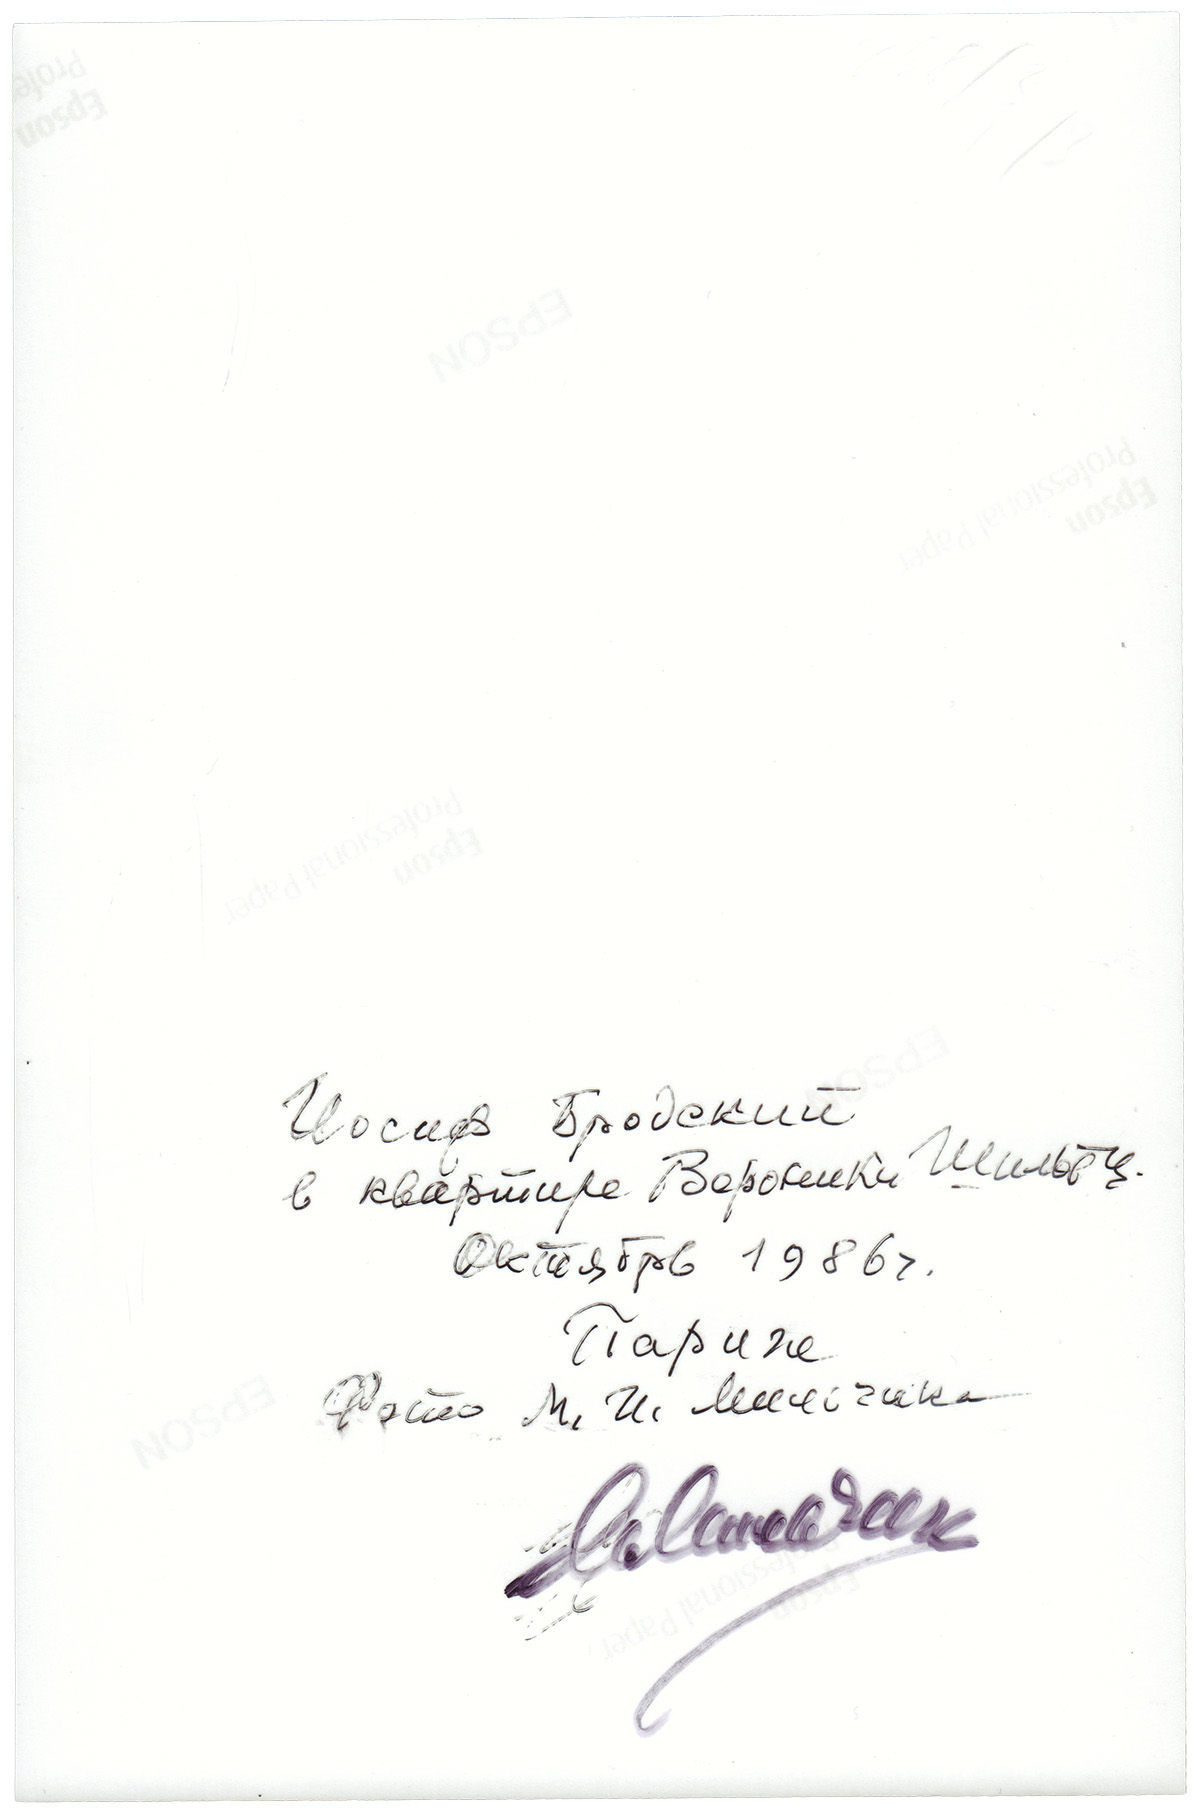 Profe
Epson
EPSON
Professional Paper
Epson
Professional Paper
Epson
EPSON
Иосиф Бродский
в квартире Вероники Шильтц.
Октябрь 1986 г.
Париж
Фото М. И. Мильчика
EPSON
М. Мильчик
Professional Paper
Epson